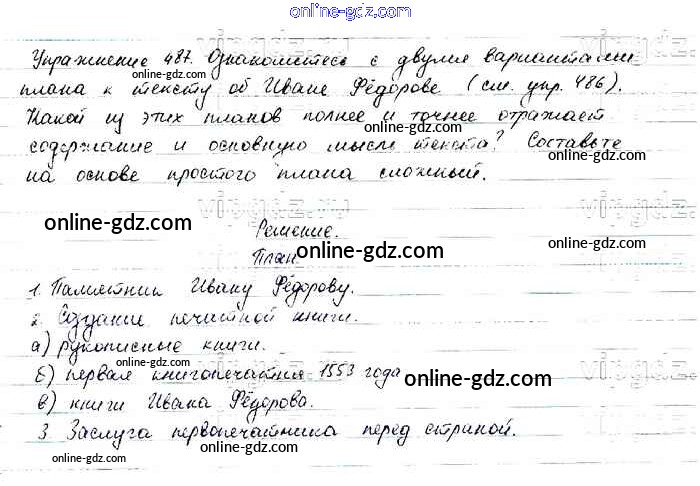 online-gdz.com
Упражнение 487. Ознакомьтесь с двумя вариантами
online-gdz.com
плана к тексту об Иване Фёдорове (см. упр. 486).
Какой из этих планов полнее и точнее отражает
online-gdz.com
содержание и основную мысль текста? Составьте
online-gdz.com
на основе простого плана сложный.
vipgdz.ru
vipgdz
online-gdz.com
Решение.
online-gdz.com
online-gdz.com
План.
1. Памятник Ивану Фёдорову.
2. Создание печатной книги.
online-gdz.com
а) рукописные книги.
б) первая книгопечатня 1553 года
online-gdz.com
в) книги Ивана Фёдорова.
online-gdz.com
3. Заслуга первопечатника перед страной.
online-gdz.com